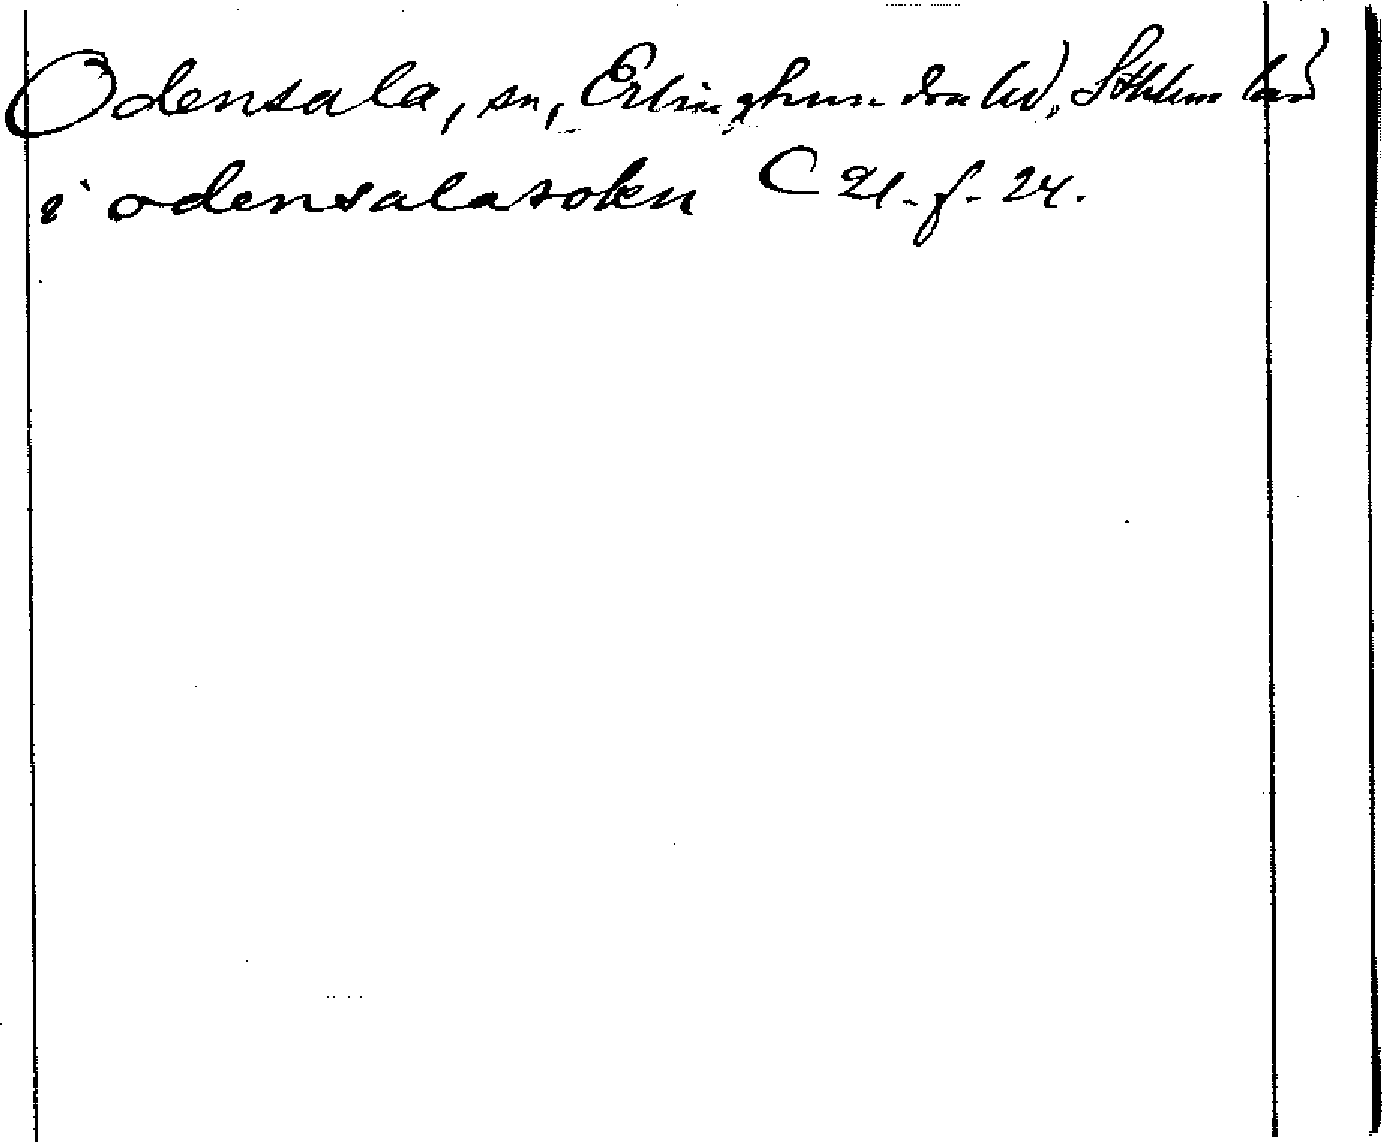 Odensala, sn, Erlinghundra hd, Sthlms län
i odensalasokn C 21. f. 24.